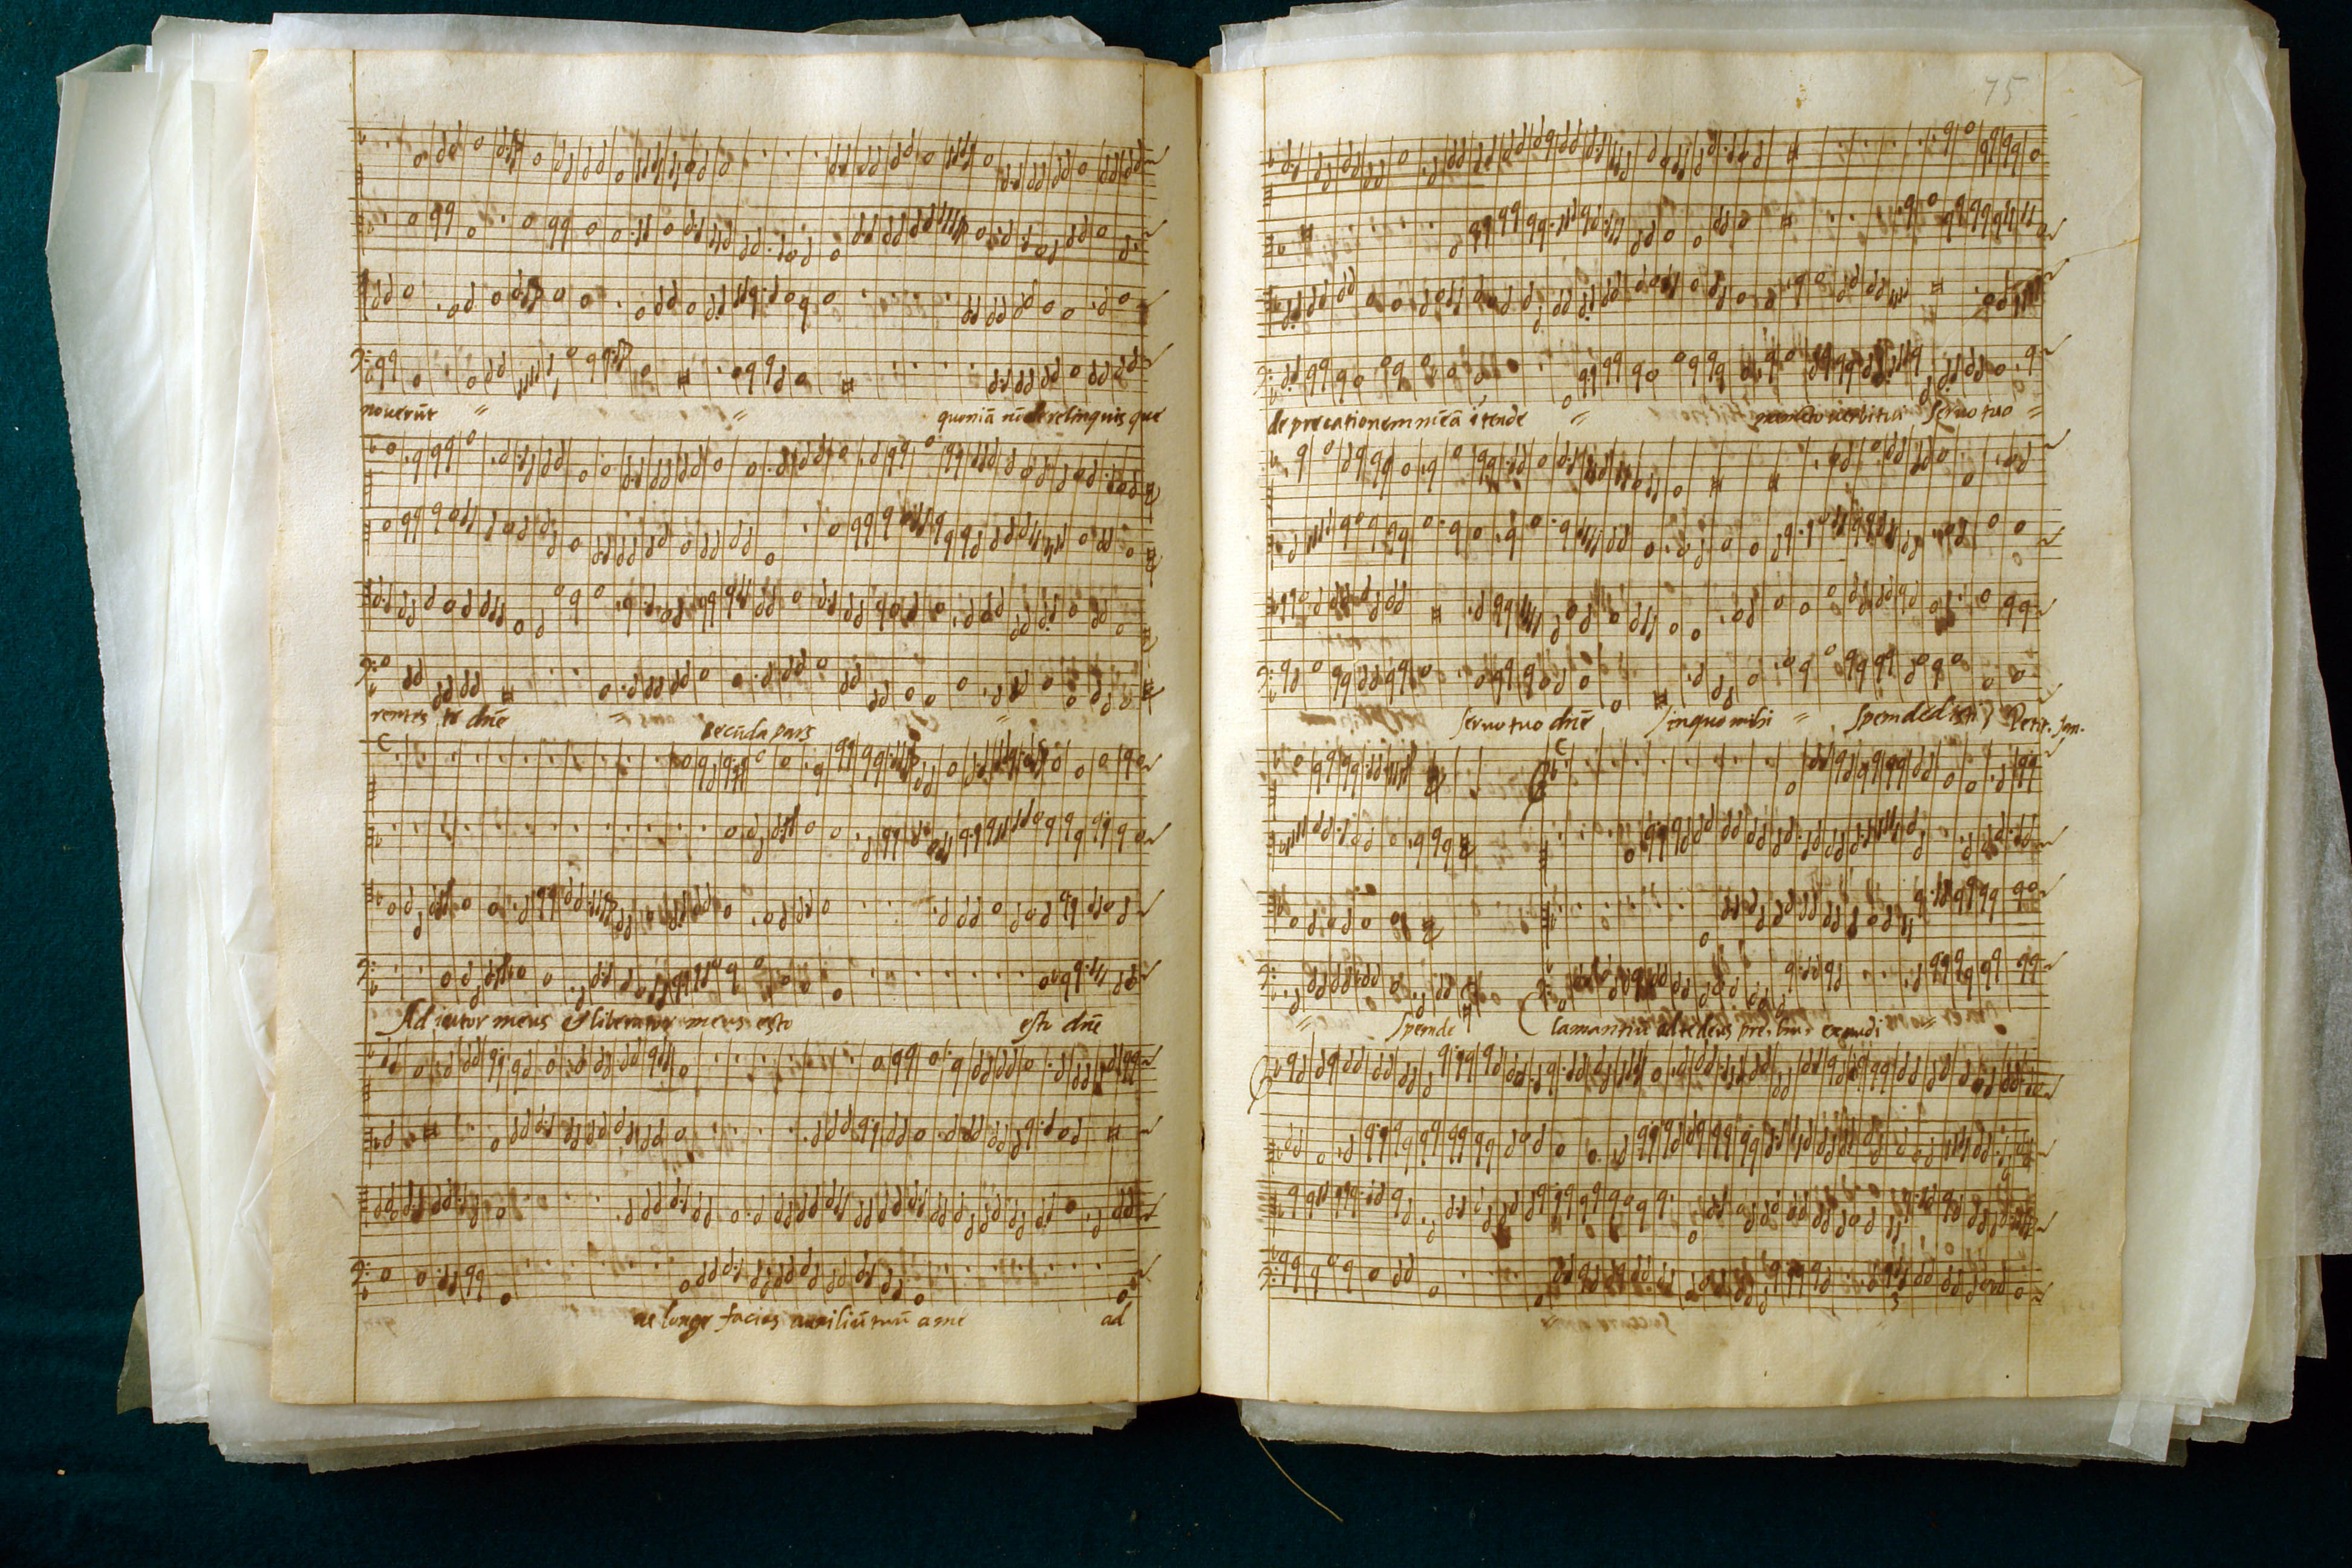 nouerūt
quoniā nō derelinquis que
rentes te dn̄e
secūda pars
Adiutor meus & liberator meus esto
esto dn̄e
ne longe facias auxiliū tuū a me
ad
75
deprecationem meā ītende
servo tuo
servo tuo dn̄e
in quo mihi
spem dedisti
Petit. Jan.
spem de
Clamantiū ad te deus
exaudi